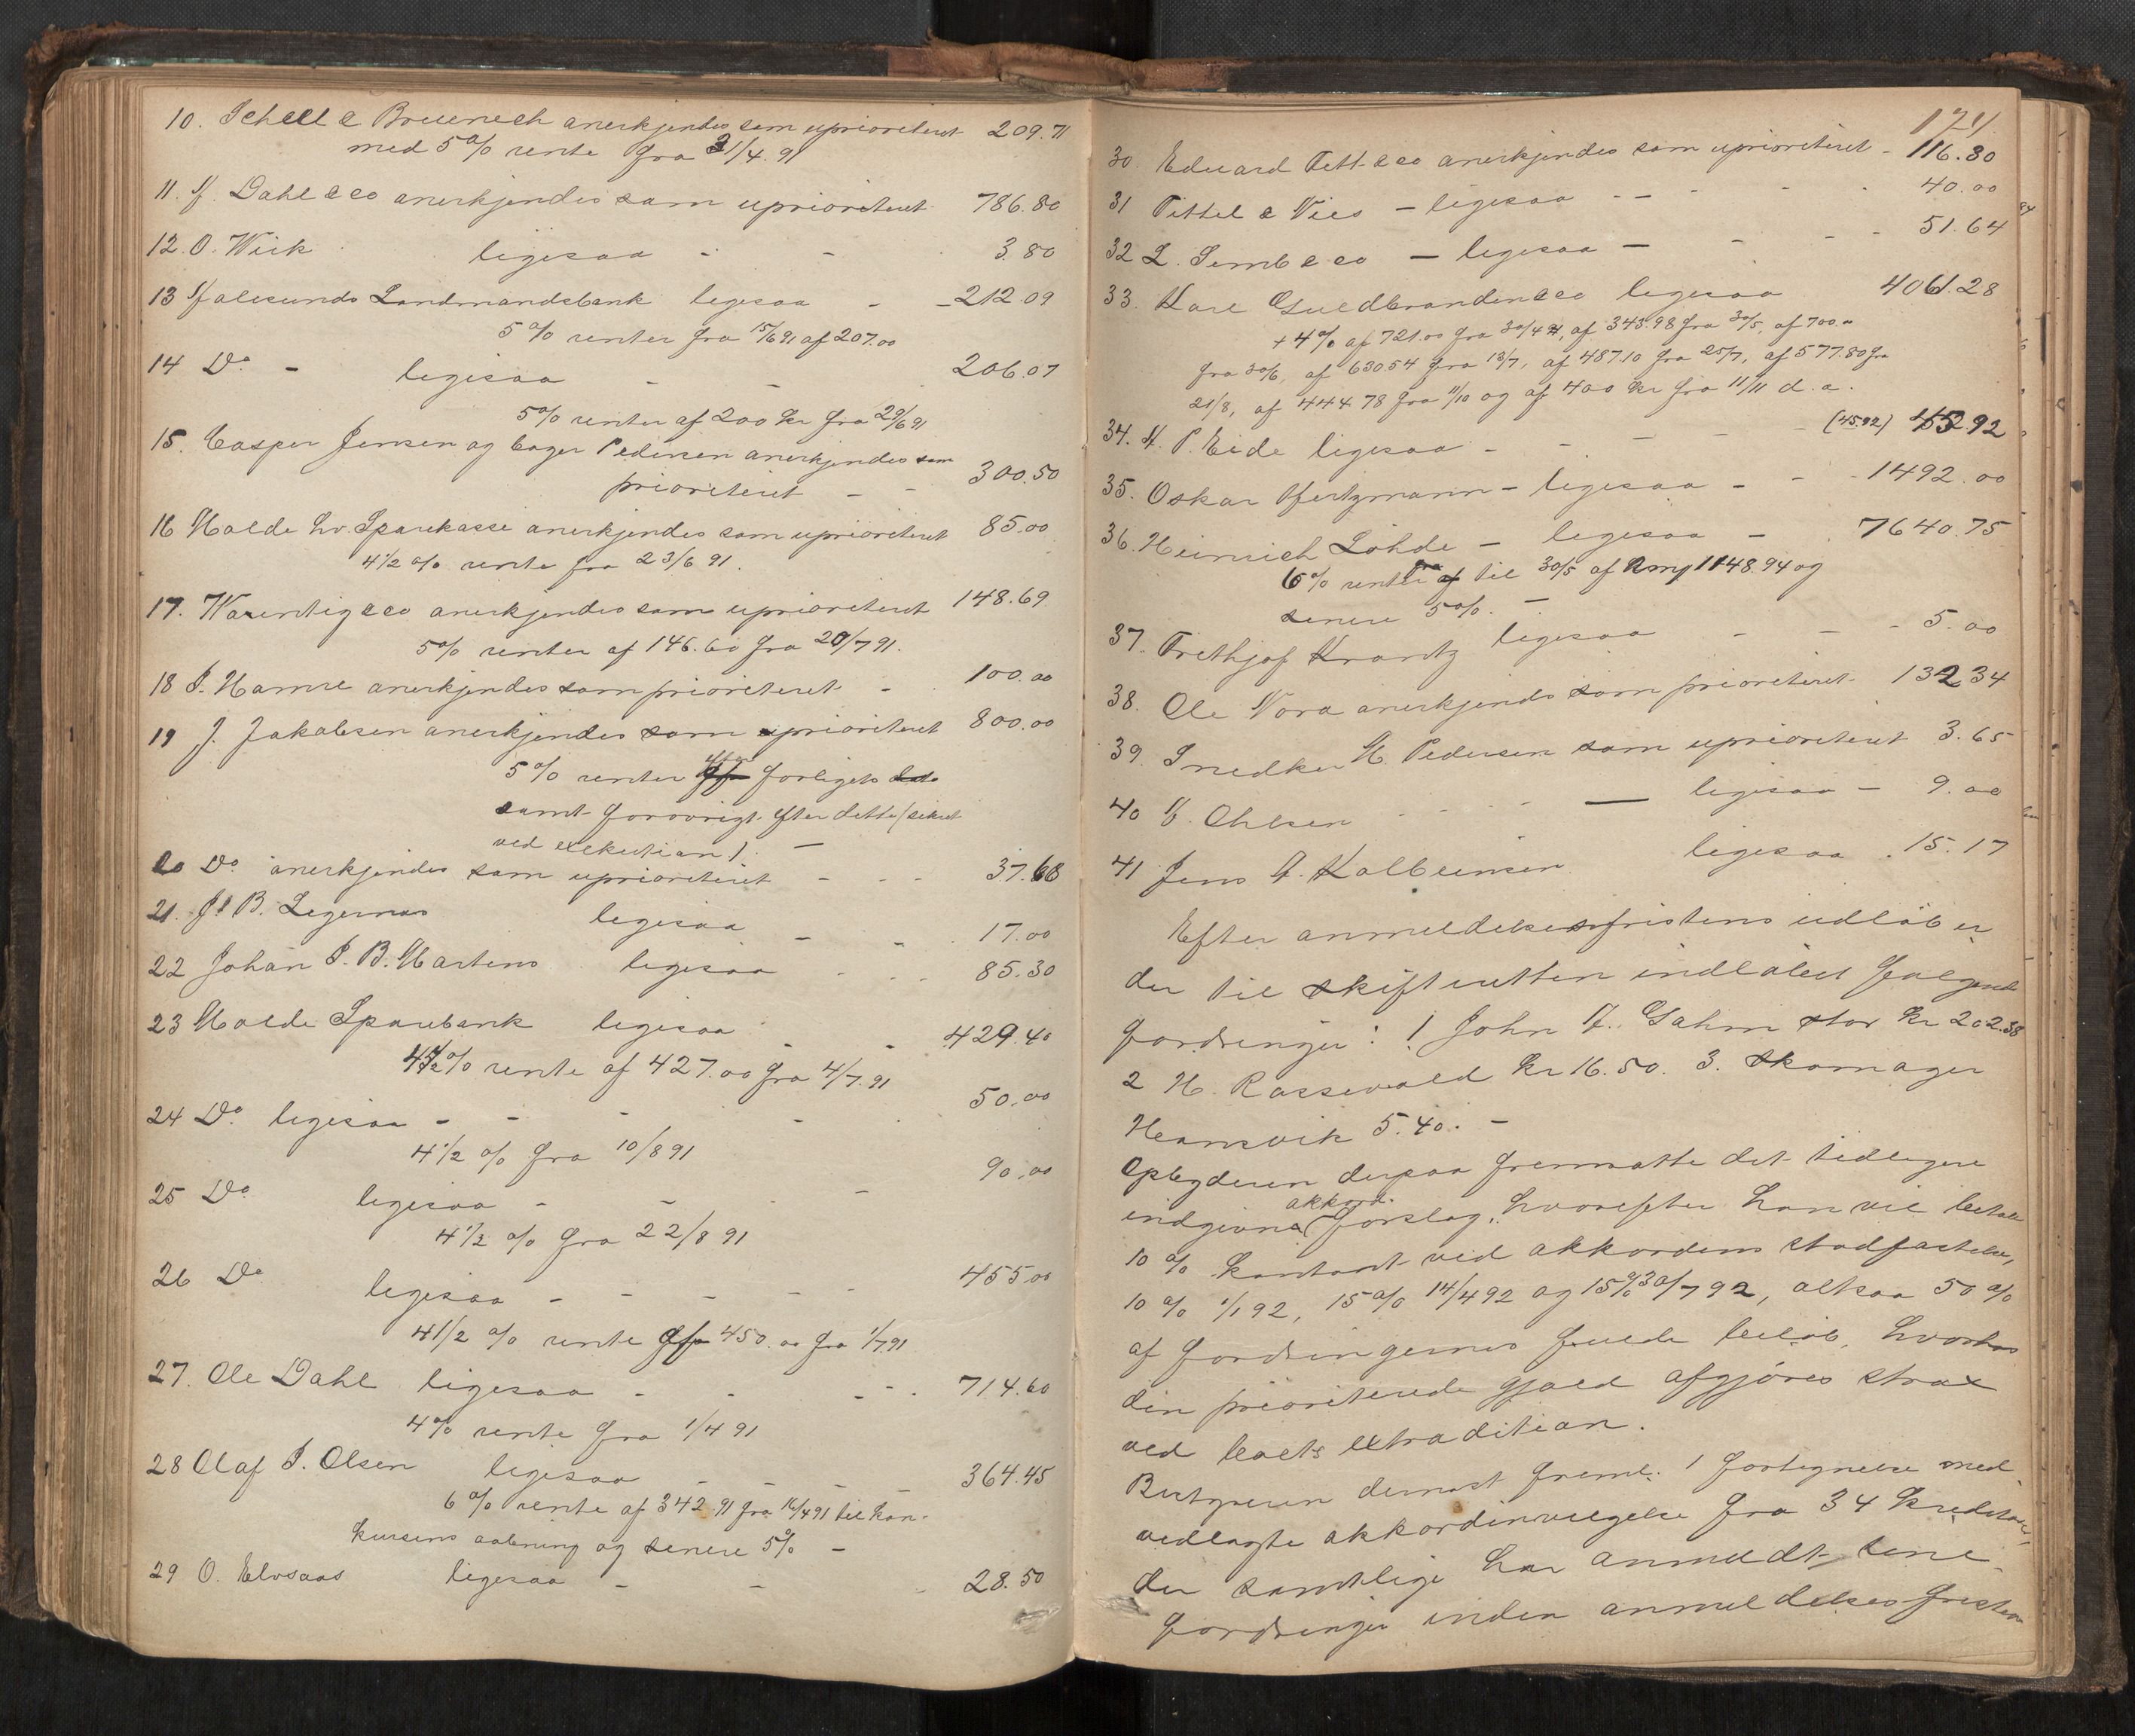 10. Schell & Bruenech anerkjendes som uprioriteret 209.71
med 5% rente fra 21/4. 91
11. Dahl & co anerkjendes som uprioriteret 786.80
12. O. Wiik ligesaa - - 3.80
13 Aalesunds Landmandsbank ligesaa - - 212.09
5% renter fra 15/6 91 af 207.00
14 Do - ligesaa - - 206.07
5% renter af 200 kr fra 29/6 91
15. Casper Jensen og Pedersen anerkjendes som
prioriteret - - 300.50
16 Molde Sparekasse anerkjendes som uprioriteret 85.00
4 1/2 % rente fra 23/6 91.
17. Warentig & co anerkjendes som uprioriteret 148.69
5% renter af 146.60 fra 20/7 91.
18 Hamre anerkjendes som prioriteret - 100.00
19 J. Jakobsen anerkjendes som uprioriteret 800.00
5% renter forligets
samt forøvrigt efter dette (sikret
ved exekution). -
20 Do anerkjendes som uprioriteret - - - 37.68
21. B. Legernæs ligesaa - - 17.00
22 Johan I. B. Martens ligesaa - - - 85.30
23 Molde Sparebank ligesaa - - 429.40
4 1/2 % rente af 427.00 fra 4/7. 91
24 Do. ligesaa - - - - 50.00
4 1/2 % fra 10/8 91
25 Do ligesaa - - - - 90.00
4 1/2 % fra 22/8 91
26 Do ligesaa - - - - - 455.00
4 1/2 % rente af 450.00 fra 1/7 91
27. Ole Dahl ligesaa - - - - - 714.60
4% rente fra 1/4 91
28 Olaf I. Olsen ligesaa - - - 364.45
6% rente af 342.91 fra 16/4 91 til kon-
kursens aabning og senere 5% -
29 O. Elvsaas ligesaa - - 28.50
171
30. Eduard Fett & co anerkjendes som uprioriteret - 116.30
31 Tittel & Nies - ligesaa - - - - - 40.00
32 L. Semb & co - ligesaa - - - - 51.64
33. Karl Guldbrandsen & co ligesaa 4061.28
+ 4% af 721.00 fra 30/4 91, af 343.98 fra 30/5, af 700.
fra 30/6, af 630.54 fra 13/7, af 487.10 fra 25/7, af 577.80 fra
21/8, af 444.78 fra 1/10 og af 400 kr fra 11/11 d. a.
34. P. Eide ligesaa - - - - - (45.92) 45.92
35. Oskar Hertzmann - ligesaa - - - 1492.00
36. Heinrich Lohde - ligesaa - 7640.75
6% renter til 30/5 af Rmk 1148.94 og
senere 5%. -
37. Frithjof Krantz ligesaa - - - 5.00
38. Ole Vora anerkjendes som prioriteret 132.34
39. Snedker Pedersen som uprioriteret 3.65
40 Ohlsen - - - — ligesaa - 9.00
41 Jens A. Kolbeinsen ligesaa . 15.17
Efter anmeldelsesfristens udløb er
der til skifteretten indløbet følgende
fordringer: 1 John Gahm stor kr 202.38
2 H. Rassevold kr 16.50. 3. Skomager
Heamsvik 5.40. -
Opbyderen derpaa fremsatte det tidligere
indgivne akkord- forslag, hvorefter han vil betale
10 % kontant ved akkordens stadfæstelse,
10 % 1/1 92, 15 % 14/4 92 og 15 % 30/7 92, altsaa 50 %
af fordringernes fulde beløb, hvorhos
den prioriterede gjæld afgjøres strax
ved boets extradition.
Bestyreren dernæst freml. 1 fortegnelse med
vedlagte akkordindvilgelse fra 34 kreditorer,
der samtlige har anmeldt sine
fordringer inden anmeldelsesfristen